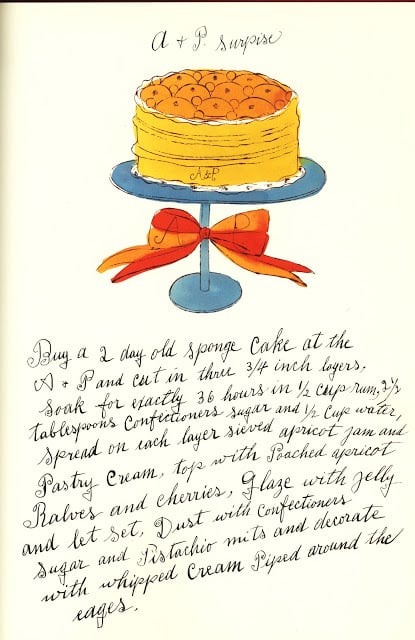 A + P. Surpise
A&P
A P
Buy a 2 day old sponge Cake at the
A + P and cut in three 3/4 inch layers,
Soak for exactly 36 hours in 1/2 cup rum, 2 1/2
tablespoons Confectioners Sugar and 1/2 Cup water,
Spread on each layer sieved apricot jam and
Pastry Cream, top with Poached apricot
Halves and cherries, Glaze with jelly
and let set, Dust with Confectioners
Sugar and Pistachio nuts and decorate
with whipped Cream Piped around the
eages.